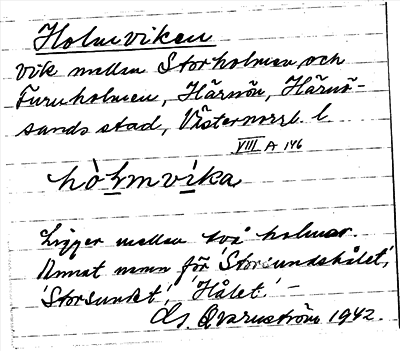 Holmviken
vik mellan Storholmen och
Furuholmen, Härnön, Härnö-
sands stad, Västernorrl. l
VIII A 146
hòlmvika
Ligger mellan två holmar.
Annat namn för 'Storsundshålet',
'Storsundet', 'Hålet'. –
Qvarnström 1942.